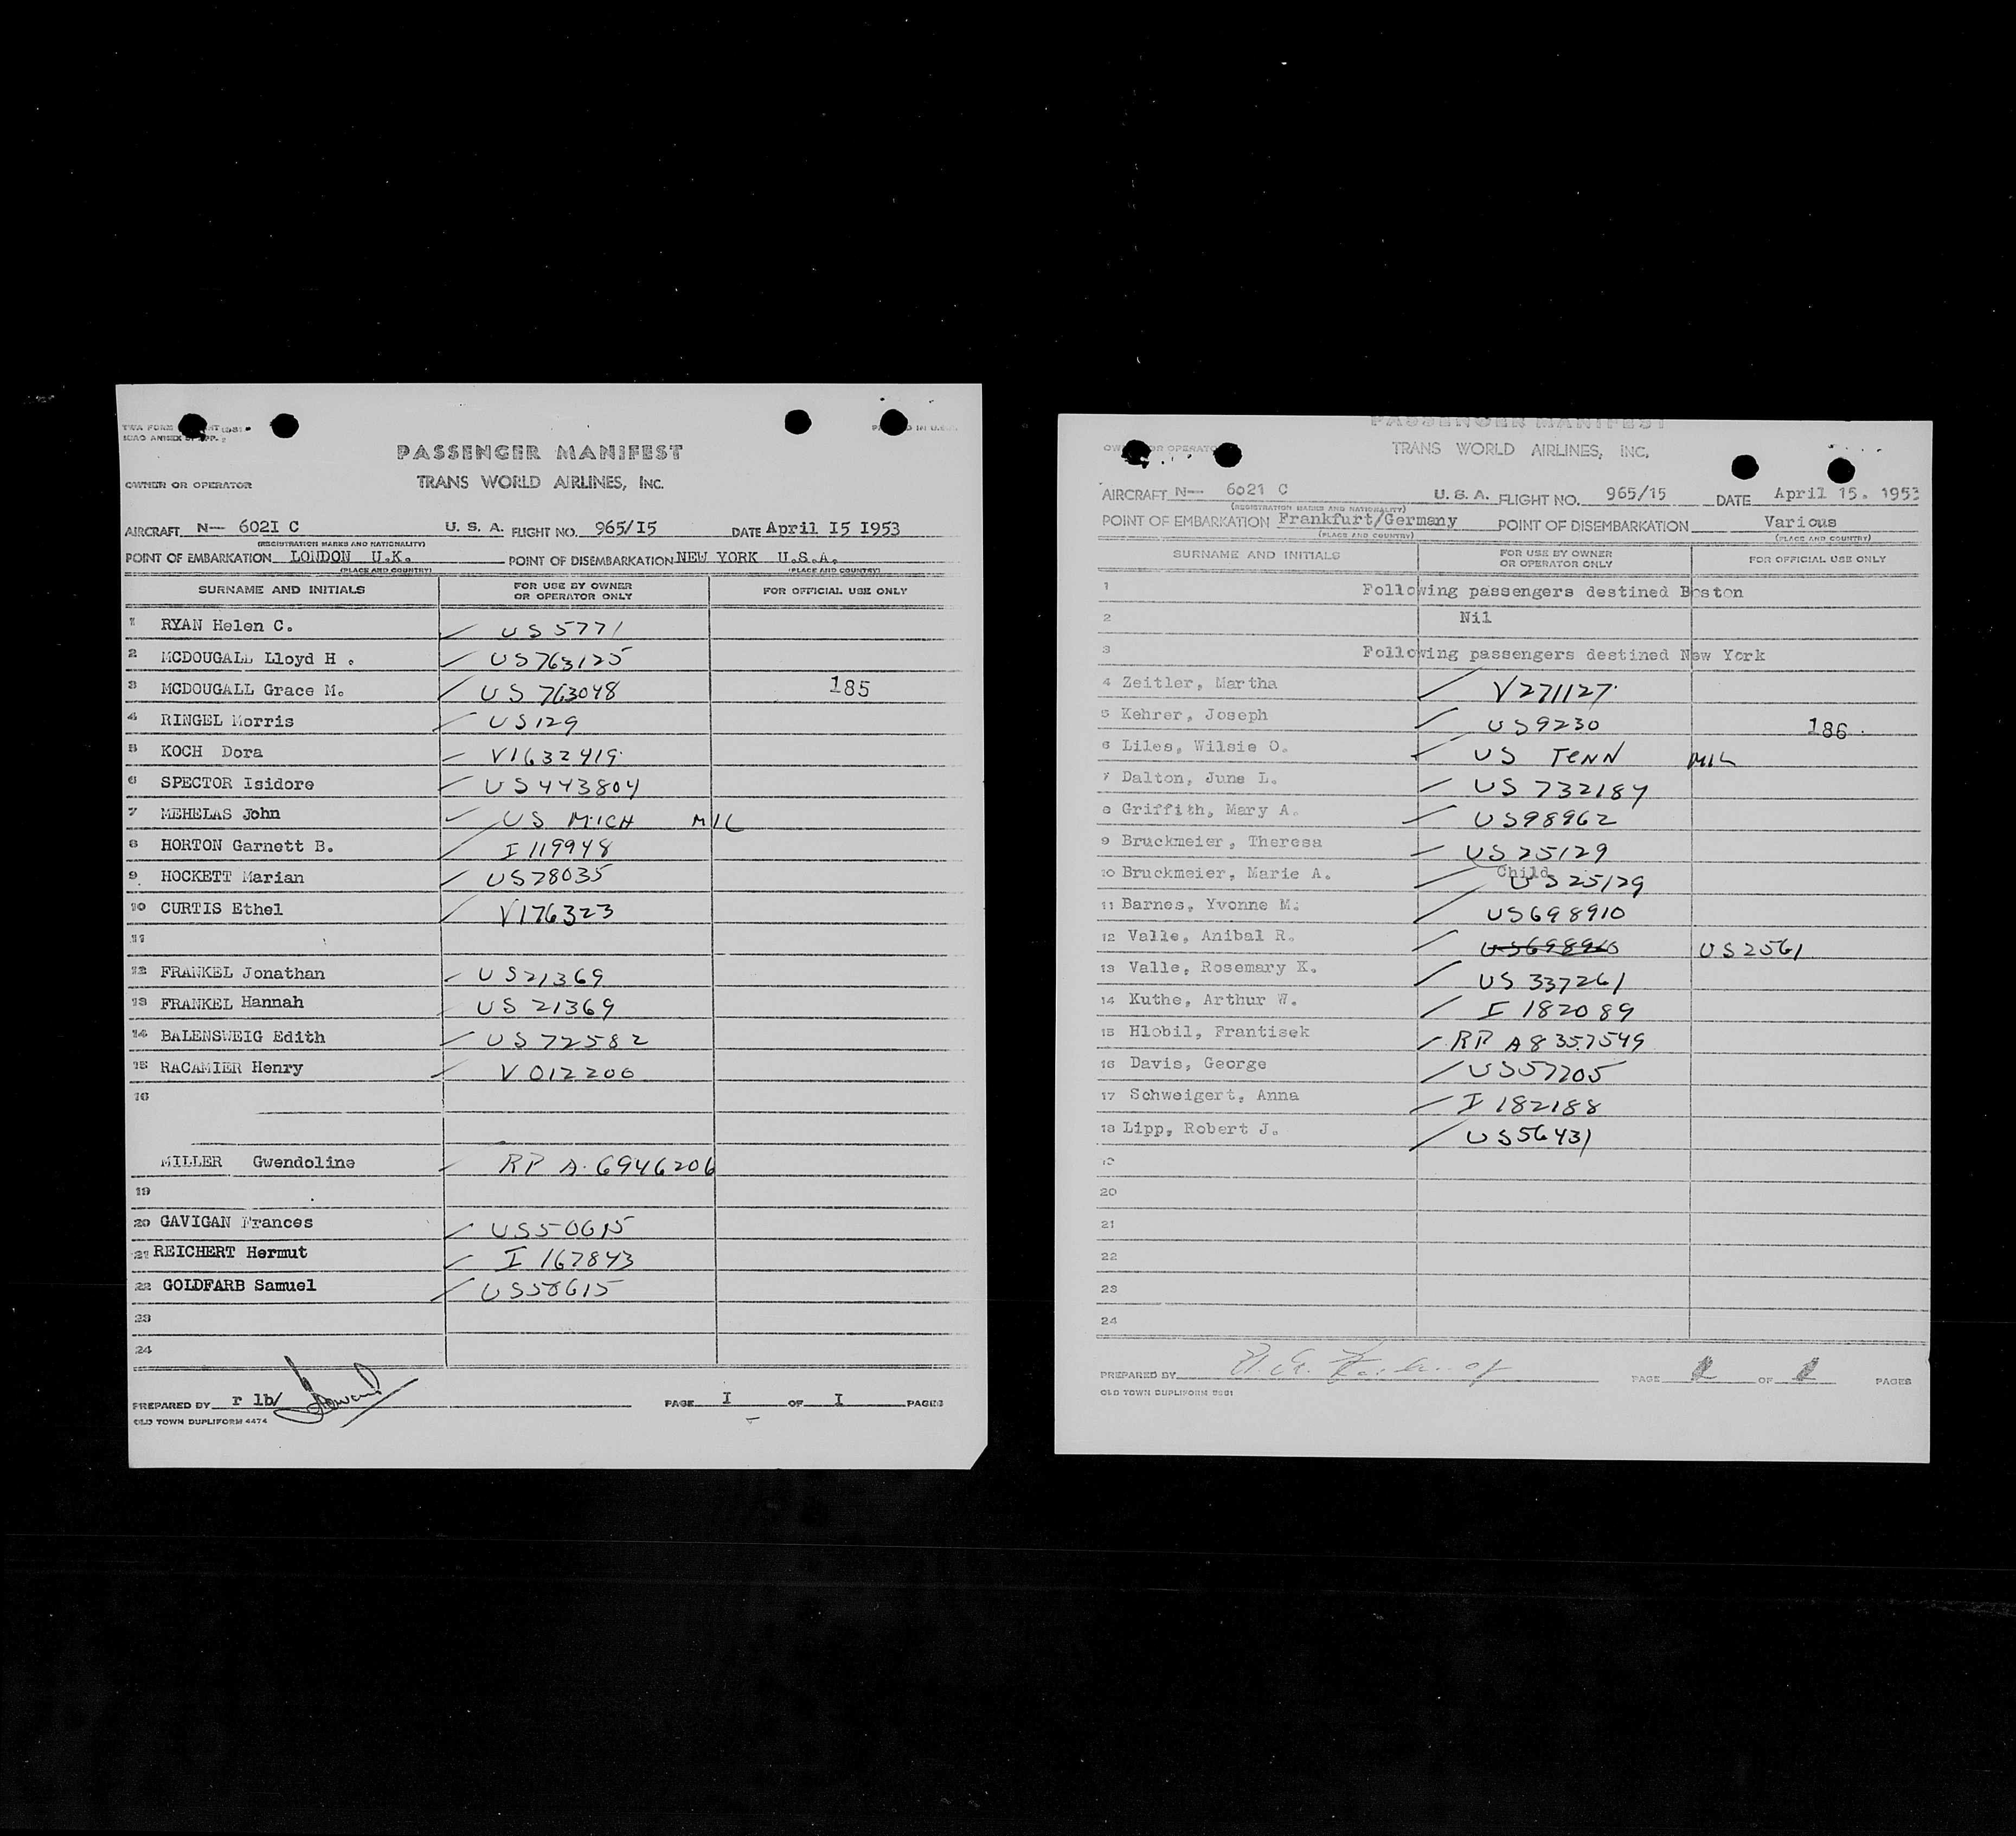 PASSENGER MANIFEST
TRANS WORLD AIRLINES, INC.
OWNER OR OPERATOR
AIRCRAFT N— 602I C U. S. A. FLIGHT NO. 965/I5 DATE April I5 I953
(REGISTRATION MARKS AND NATIONALITY)
POINT OF EMBARKATION LONDON U.K. POINT OF DISEMBARKATION NEW YORK U.S.A.
(PLACE AND COUNTRY) (PLACE AND COUNTRY)
SURNAME AND INITIALS FOR USE BY OWNER OR OPERATOR ONLY FOR OFFICIAL USE ONLY
1 RYAN Helen C. US 5771
2 MCDOUGALL Lloyd H . US763125
3 MCDOUGALL Grace M. US 763048 185
4 RINGEL Morris US129
5 KOCH Dora V1632419
6 SPECTOR Isidore US443804
7 MEHELAS John US MICH MIL
8 HORTON Garnett B. I 119948
9 HOCKETT Marian US78035
10 CURTIS Ethel V176323
11
12 FRANKEL Jonathan US21369
13 FRANKEL Hannah US 21369
14 BALENSWEIG Edith US72582
15 RACAMIER Henry V 012206
16
MILLER Gwendoline RP A. 6946206
19
20 GAVIGAN Frances US50615
21 REICHERT Hermut I 167843
22 GOLDFARB Samuel US50615
23
24
PREPARED BY r lb/ PAGE I OF I PAGES
OLD TOWN DUPLIFORM 4474
PASSENGER MANIFEST
TRANS WORLD AIRLINES, INC.
AIRCRAFT N— 6021 C U. S. A. FLIGHT NO. 965/15 DATE April 15. 1953
(REGISTRATION MARKS AND NATIONALITY)
POINT OF EMBARKATION Frankfurt/Germany POINT OF DISEMBARKATION Various
(PLACE AND COUNTRY) (PLACE AND COUNTRY)
SURNAME AND INITIALS FOR USE BY OWNER OR OPERATOR ONLY FOR OFFICIAL USE ONLY
1 Following passengers destined Boston
2 Nil
3 Following passengers destined New York
4 Zeitler, Martha V271127
5 Kehrer, Joseph US9230 186
6 Liles, Wilsie O. US TENN MIL
7 Dalton, June L. US 732184
8 Griffith, Mary A. US98962
9 Bruckmeier, Theresa US25129
10 Bruckmeier, Marie A. Child US25129
11 Barnes, Yvonne M. US698910
12 Valle, Anibal R. US698910 US2561
13 Valle, Rosemary K. US 337261
14 Kuthe, Arthur W. I 182089
15 Hlobil, Frantisek RP A8357549
16 Davis, George US57205
17 Schweigert, Anna I 182188
18 Lipp, Robert J. US56431
19
20
21
22
23
24
PREPARED BY PAGE OF PAGES
OLD TOWN DUPLIFORM